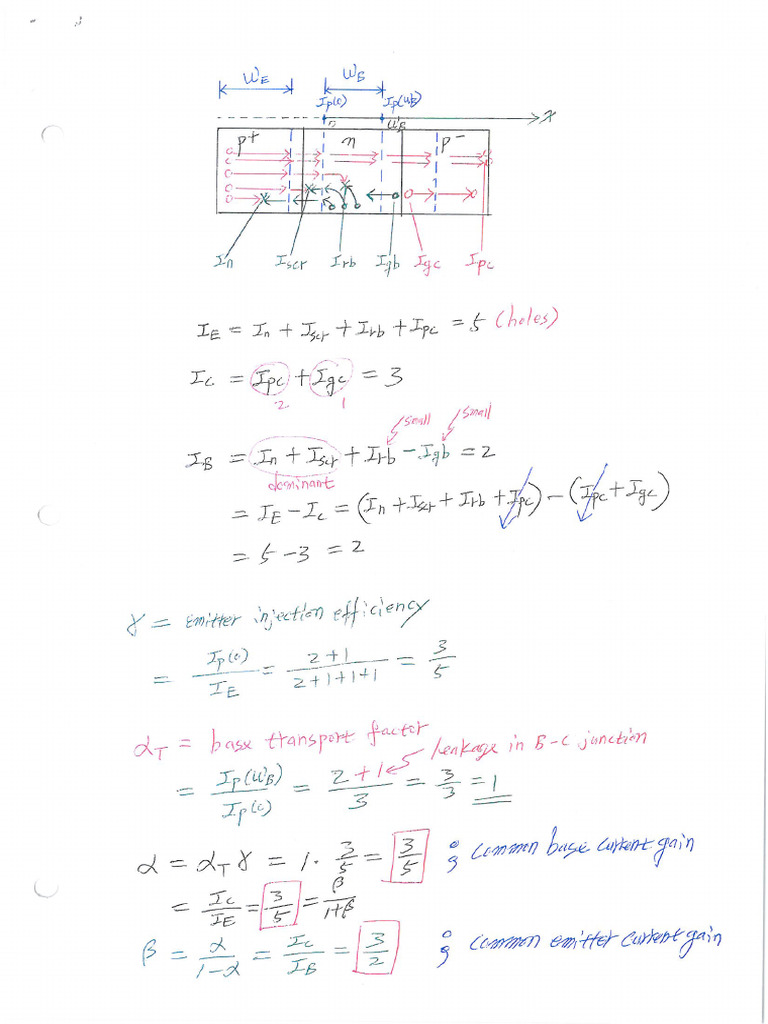 W_E W_B
I_p(0) I_p(W_B)
0 W_B x
p+ n p-
I_n I_scr I_rb I_gb I_gc I_pc
I_E = I_n + I_scr + I_rb + I_pc = 5 (holes)
I_C = I_pc + I_gc = 3
2 1
small small
I_B = I_n + I_scr + I_rb - I_gb = 2
dominant
= I_E - I_C = (I_n + I_scr + I_rb + I_pc) - (I_pc + I_gc)
= 5 - 3 = 2
γ = emitter injection efficiency
= I_p(0) / I_E = 2+1 / 2+1+1+1 = 3/5
α_T = base transport factor
leakage in B-C junction
= I_p(W_B) / I_p(0) = 2+1 / 3 = 3/3 = 1
α = α_T γ = 1 · 3/5 = 3/5 ; common base current gain
= I_C / I_E = 3/5 = β / 1+β
β = α / 1-α = I_C / I_B = 3/2 ; common emitter current gain